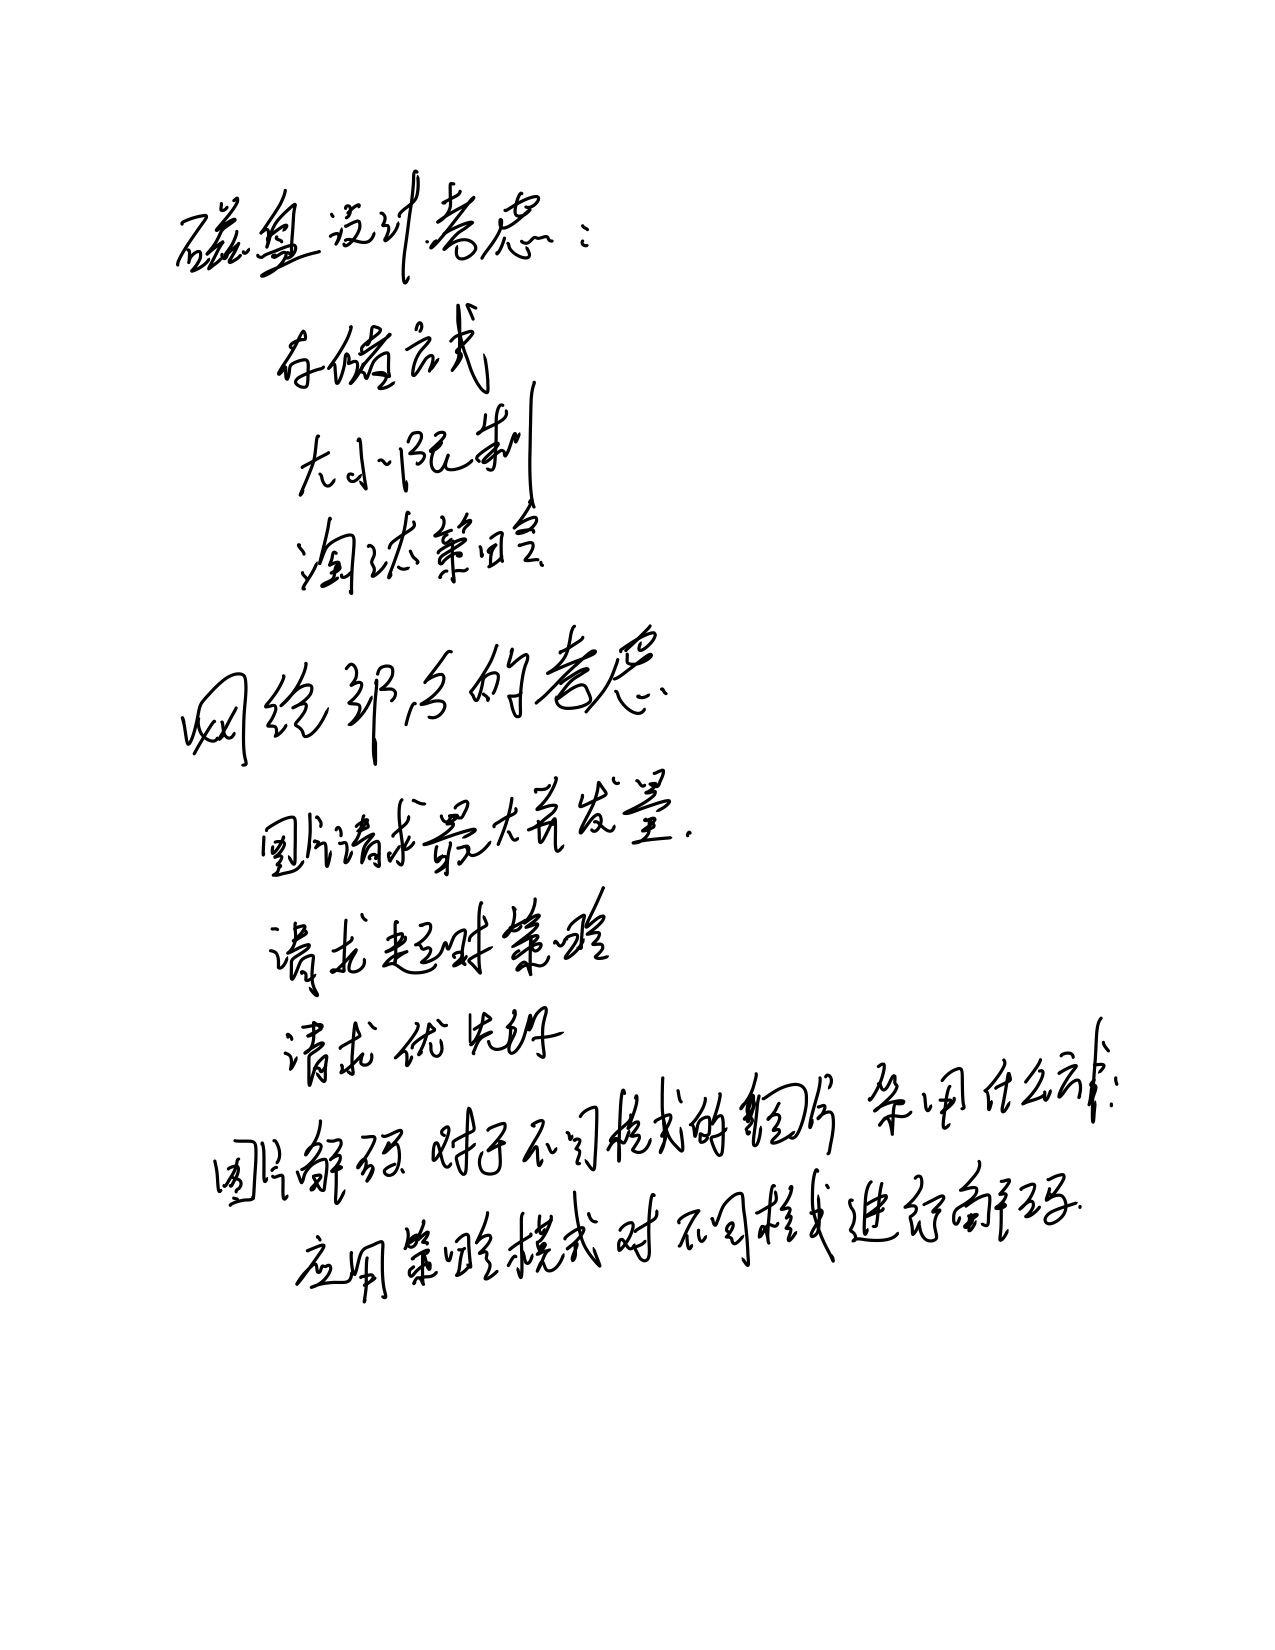 磁盘设计考虑：
存储方式
大小限制
淘汰策略
网络部分的考虑
图片请求最大并发量.
请求超时策略
请求优先级
图片解码 对于不同格式的图片 采用什么方式:
应用策略模式对不同格式进行解码.